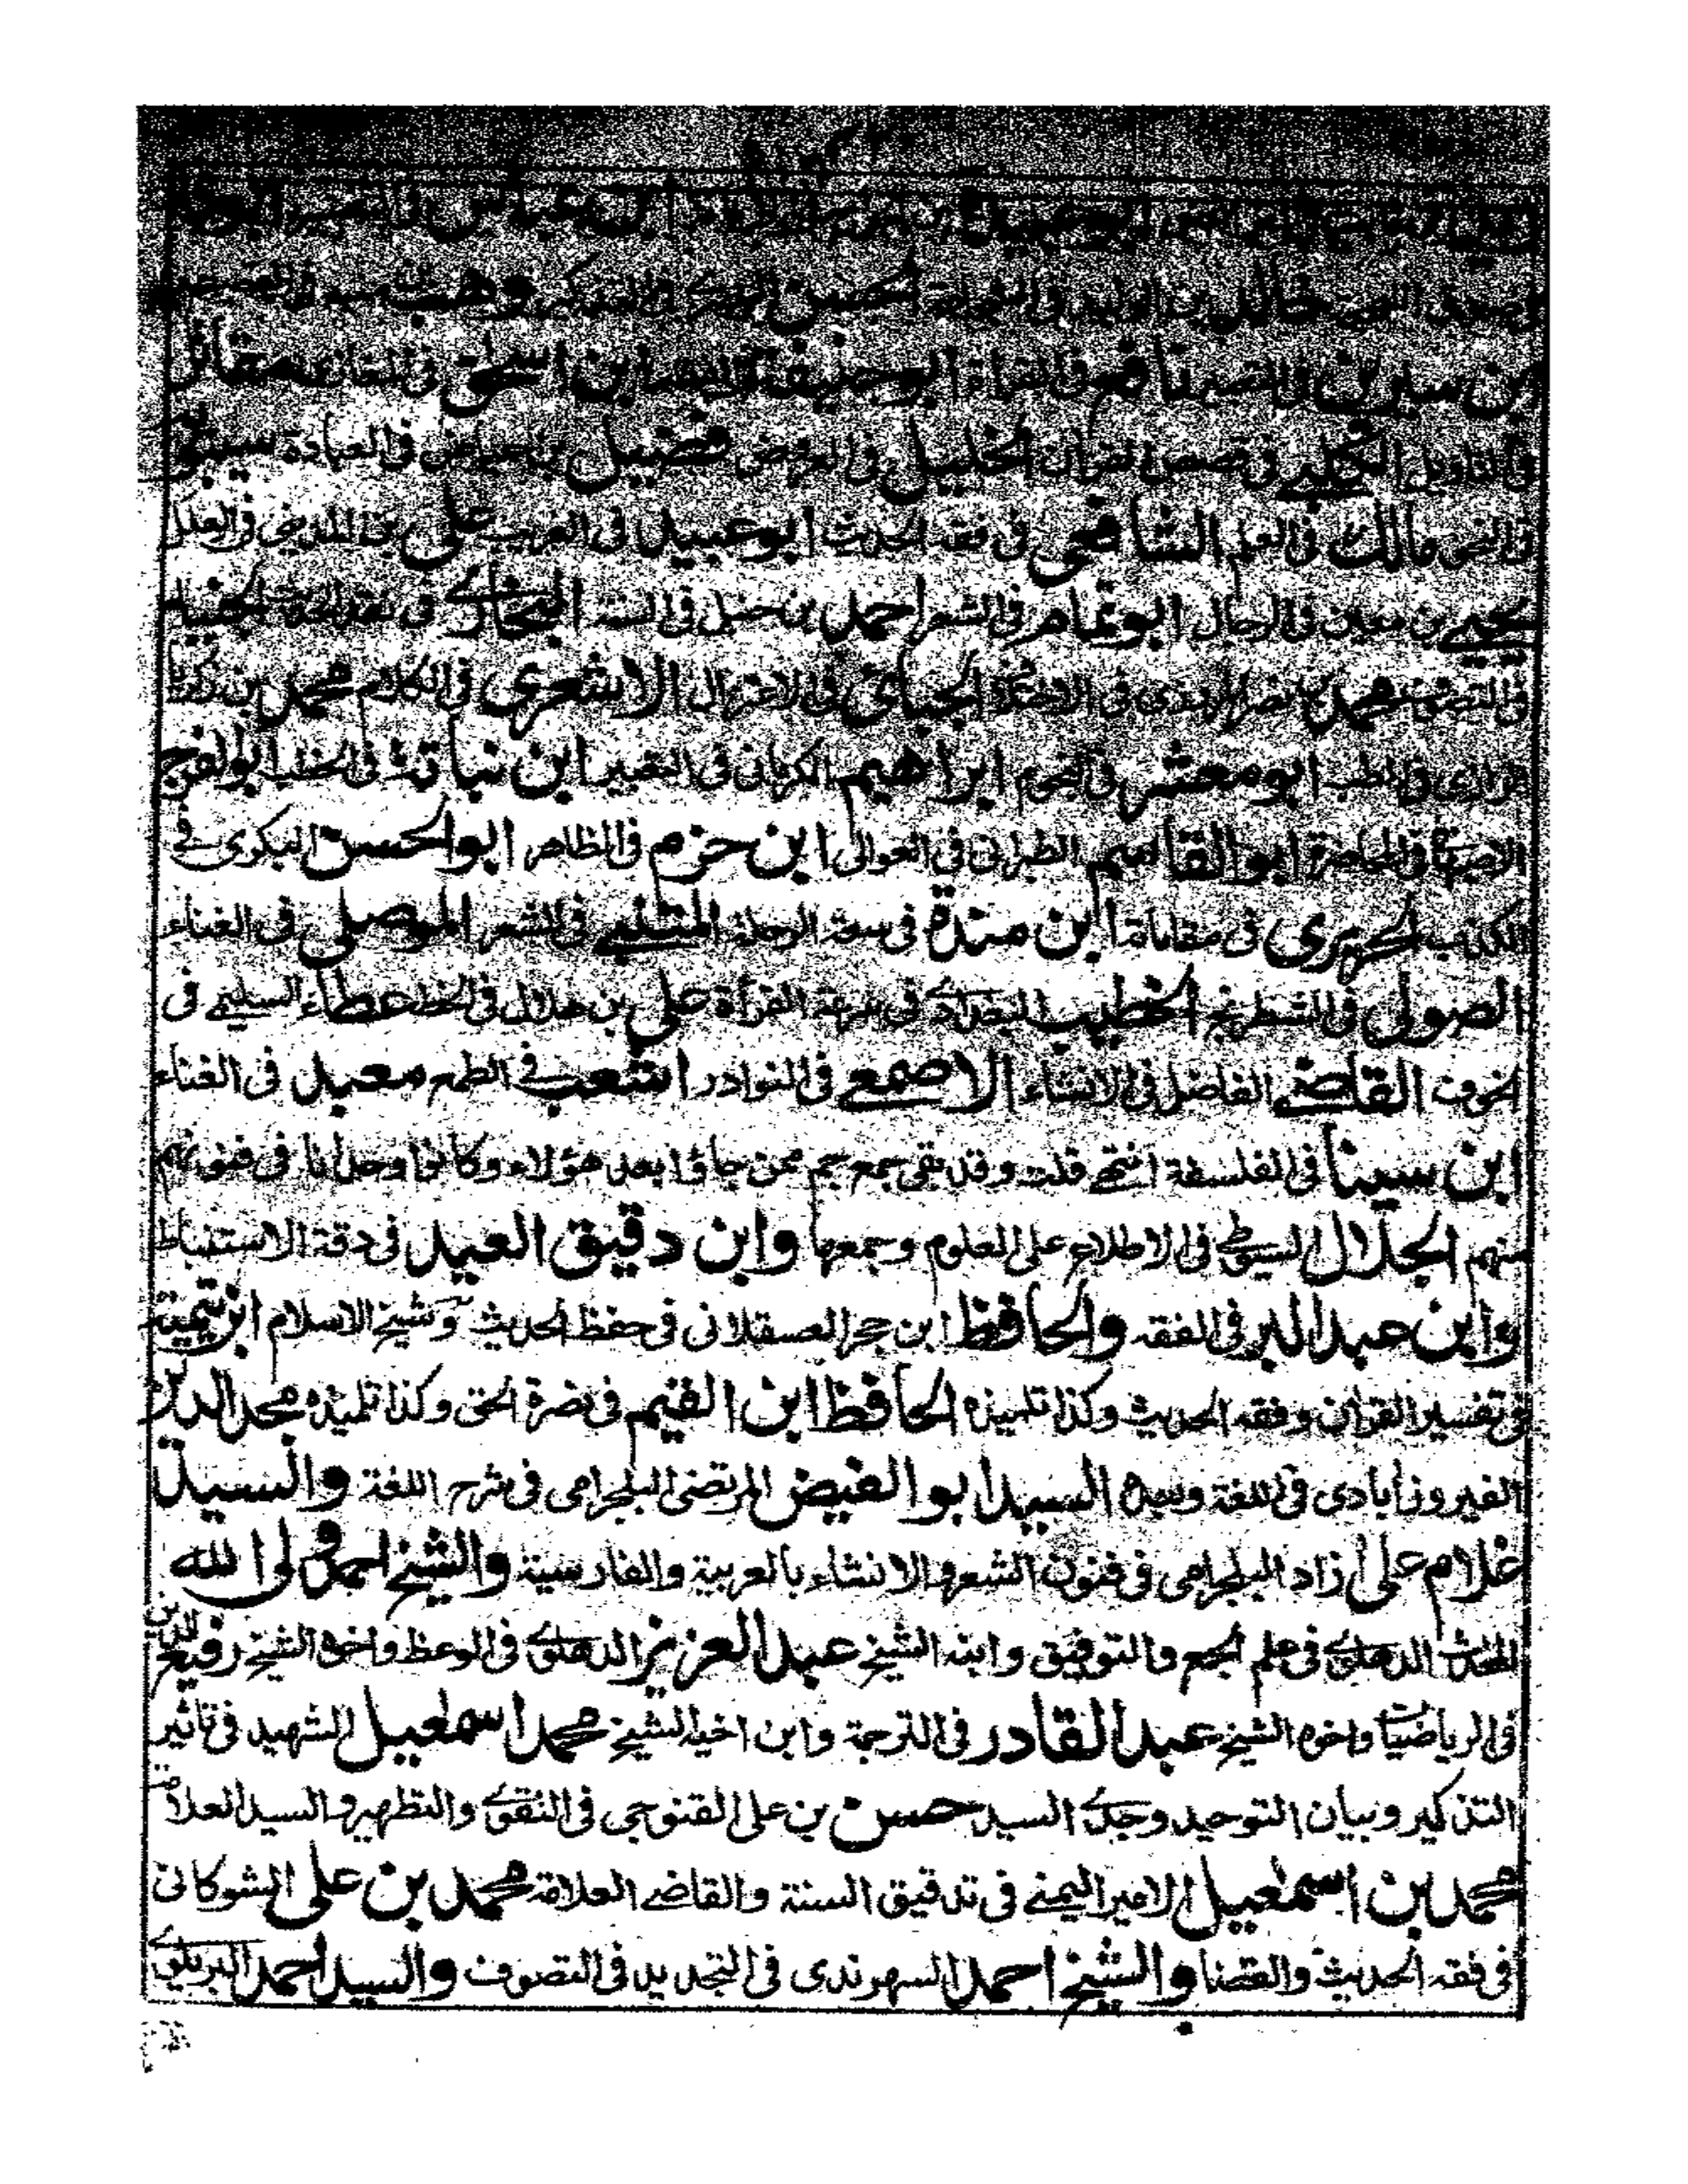 ابن عباس فى التفسير
خالد بن الوليد فى الحسن البصرى فى التذكير وهب
بن سيرين فى التعبير نافع فى القراءة ابو حنيفة فى الفقه ابن اسحق فى المغازى مقاتل
فى التاويل الكلبے فى قصص القران الخليل فى العروض فضيل بن عياض فى العبادة سيبويه
فى النحو مالك فى العلم الشافعى فى فقه الحديث ابو عبيد فى الغريب على بن المدينى فى العلل
يحيے بن معين فى الرجال ابو تمام فى الشعر احمد بن حنبل فى السنة البخارے فى نقد الحديث الجنيد
فى التصوف محمد بن نصر المروزى فى الاختلاف الجبائى فى الاعتزال الاشعرى فى الكلام محمد بن زكريا
الرازى فى الطب ابو معشر فى النجوم ابراهيم الكرمانى فى التعبير ابن نباتة فى الخطب ابو الفرج
الاصبهانى فى المحاضرة ابو القاسم الطبرانى فى العوالى ابن حزم فى الظاهر ابو الحسن البكرى فے
الكذب الحريرى فى مقاماته ابن مندة فى سعة الرحلة المتنبے فى الشعر الموصلى فى الغناء
الصولى فى الشطرنج الخطيب البغدادے فى سرعة القرأة على بن هلال فى الخط عطاء السليمے فى
الخوف القاضے الفاضل فى الانشاء الاصمعے فى النوادر اشعب فے الطمع معبد فى الغناء
ابن سينا فى الفلسفة انتهے قلت وقد بقى جمع جم ممن جاؤا بعد هؤلاء وكانوا وحدانا فى فنونهم
منهم الجلال السيوطے فى الاطلاع على العلوم وجمعها وابن دقيق العيد فى دقة الاستنباط
وابن عبد البر فى الفقه والحافظ ابن حجر العسقلانى فى حفظ الحديث وشيخ الاسلام ابن تيمية
فى تفسير القران وفقه الحديث وكذا تلميذه الحافظ ابن القيم فى نصرة الحق وكذا تلميذه مجد الدين
الفيروزأبادى فى اللغة وبعده السيد ابو الفيض المرتضى البلجرامى فى شرح اللغة والسيد
غلام على أزاد البلجرامى فى فنون الشعر والانشاء بالعربية والفارسية والشيخ احمد ولى الله
المحدث الدهلوے فى علم الجمع والتوفيق وابنه الشيخ عبد العزيز الدهلوے فى الوعظ واخوه الشيخ رفيع الدين
فى الرياضيات واخوه الشيخ عبد القادر فى الترجمة وابن اخيه الشيخ محمد اسمعيل الشهيد فى تاثير
التذكير وبيان التوحيد وجدے السيد حسن بن على القنوجى فى التقوے والتطهير والسيد العلامة
محمد ابن اسمعيل الامير اليمنے فى تدقيق السنة والقاضے العلامة محمد بن على الشوكانى
فى فقه الحديث والقضا والشيخ احمد السهرندى فى التجديد فى التصوف والسيد احمد البريلوے